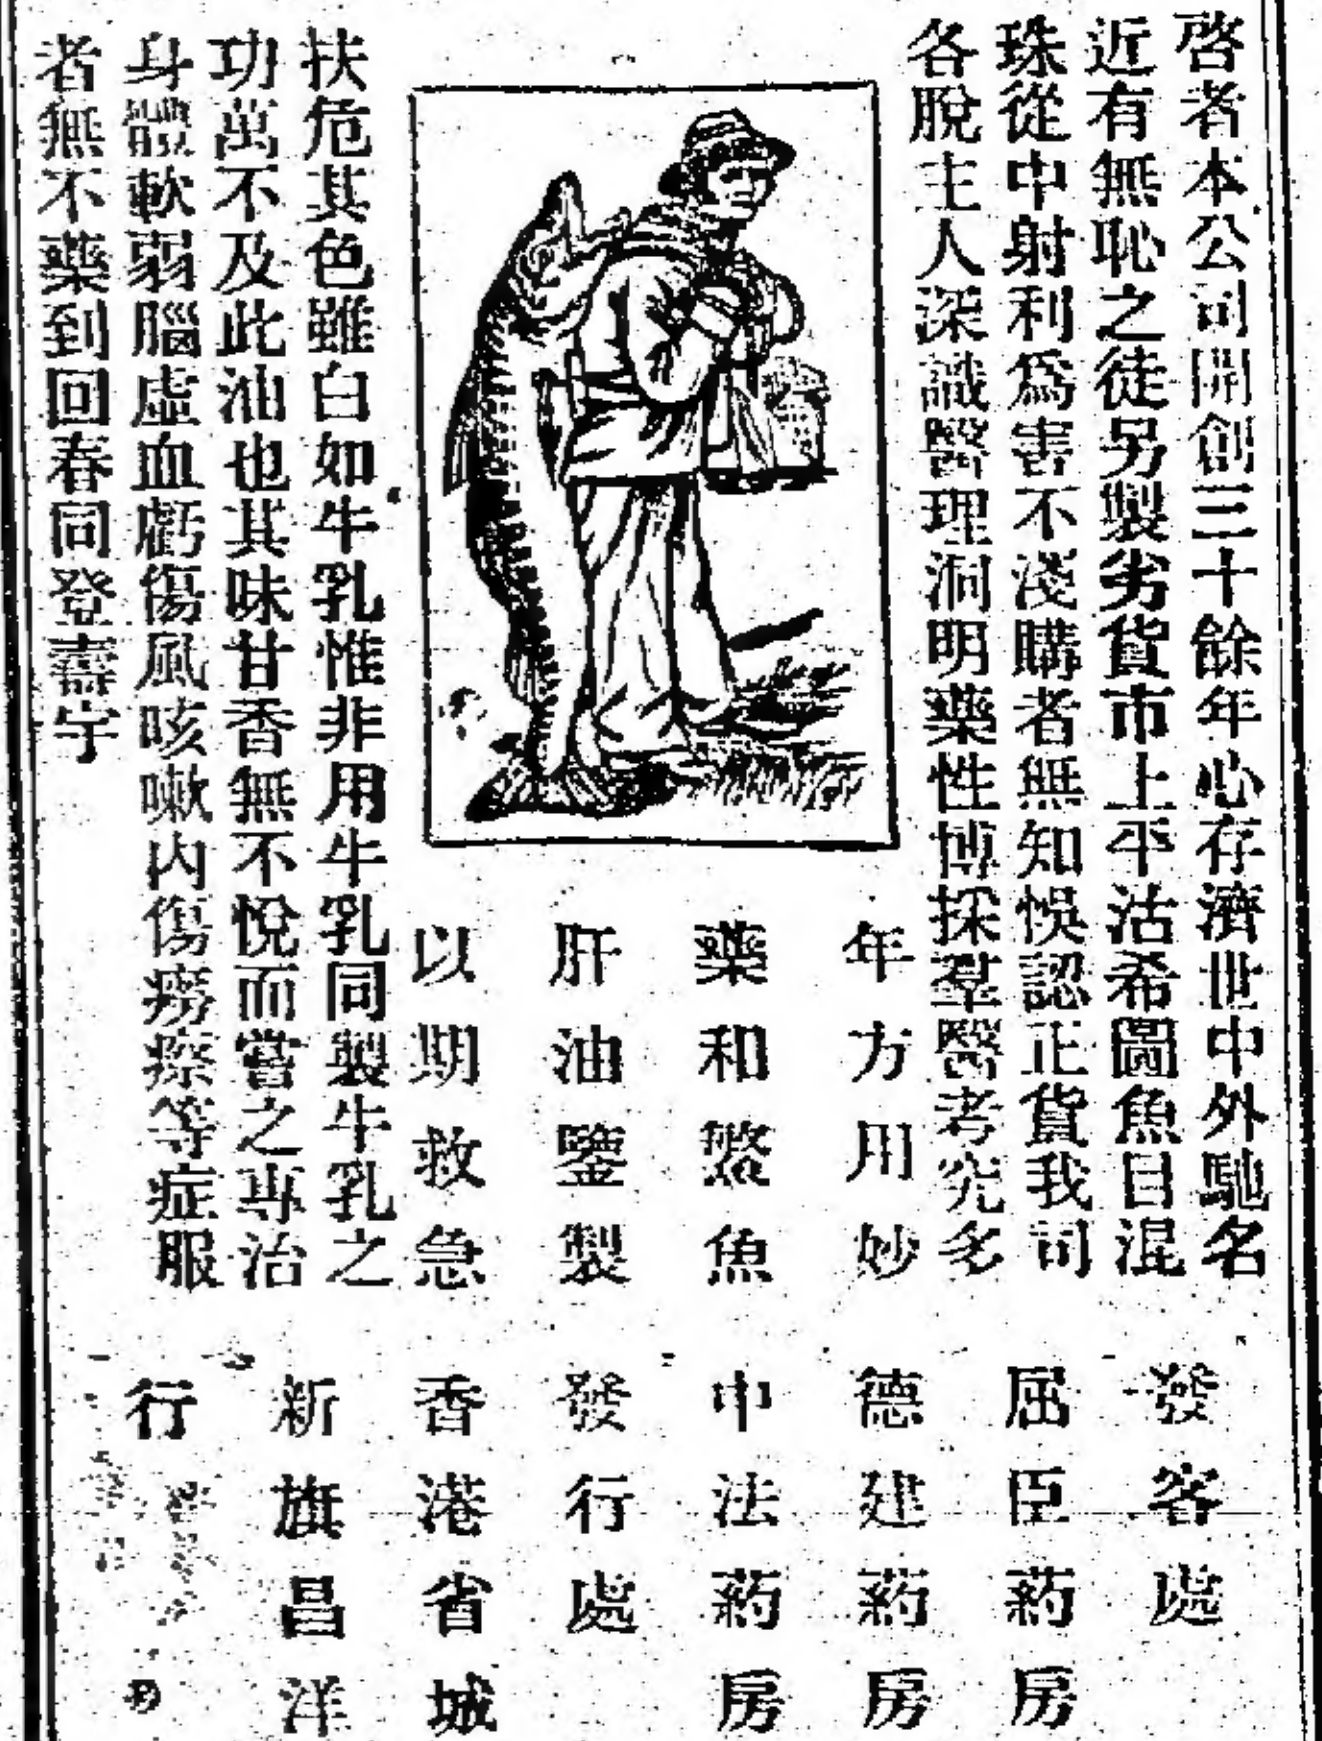 啓者本公司開創三十餘年心存濟世中外馳名
近有無恥之徒另製劣貨市上平沽希圖魚目混
珠從中射利爲害不淺購者無知悞認正貨我司
各脫主人深識醫理洞明藥性博採羣醫考究多
年方用妙
藥和鰵魚
肝油鑒製
以期救急
扶危其色雖白如牛乳惟非用牛乳同製牛乳之
功萬不及此油也其味甘香無不悅而嘗之專治
身體軟弱腦虛血虧傷風咳嗽內傷癆瘵等症服
者無不藥到回春同登壽宇
發客處
屈臣葯房
德建葯房
中法葯房
發行處
香港省城
新旗昌洋
行